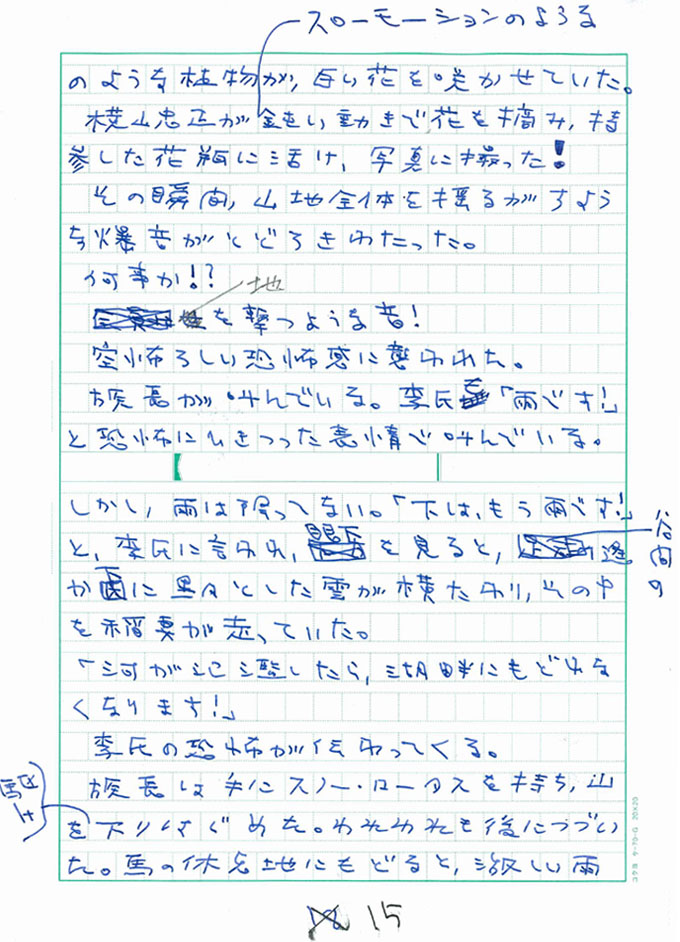 スローモーションのような
のような植物が、白い花を咲かせていた。
横山忠正が鈍い動きで花を摘み、持
参した花瓶に活け、写真に撮った!
その瞬間、山地全体を揺るがすよう
な爆音がとどろきわたった。
何事か!?
地
を撃つような音!
空怖ろしい恐怖感に襲われた。
族長が叫んでいる。李氏も「雨です!」
と恐怖にひきつった表情で叫んでいる。
しかし、雨は降ってない。「下は、もう雨です!」
と、李氏に言われ、眼下を見ると、遥
谷間の
か下に黒々とした雲が横たわり、その中
を稲妻が走っていた。
「河が氾濫したら、湖畔にもどれな
くなります!」
李氏の恐怖が伝わってくる。
族長は手にスノー・ロータスを持ち、山
を下りはじめた。われわれも後につづい
た。馬の休息地にもどると、激しい雨
15
コクヨ ケ-70-G 20×20